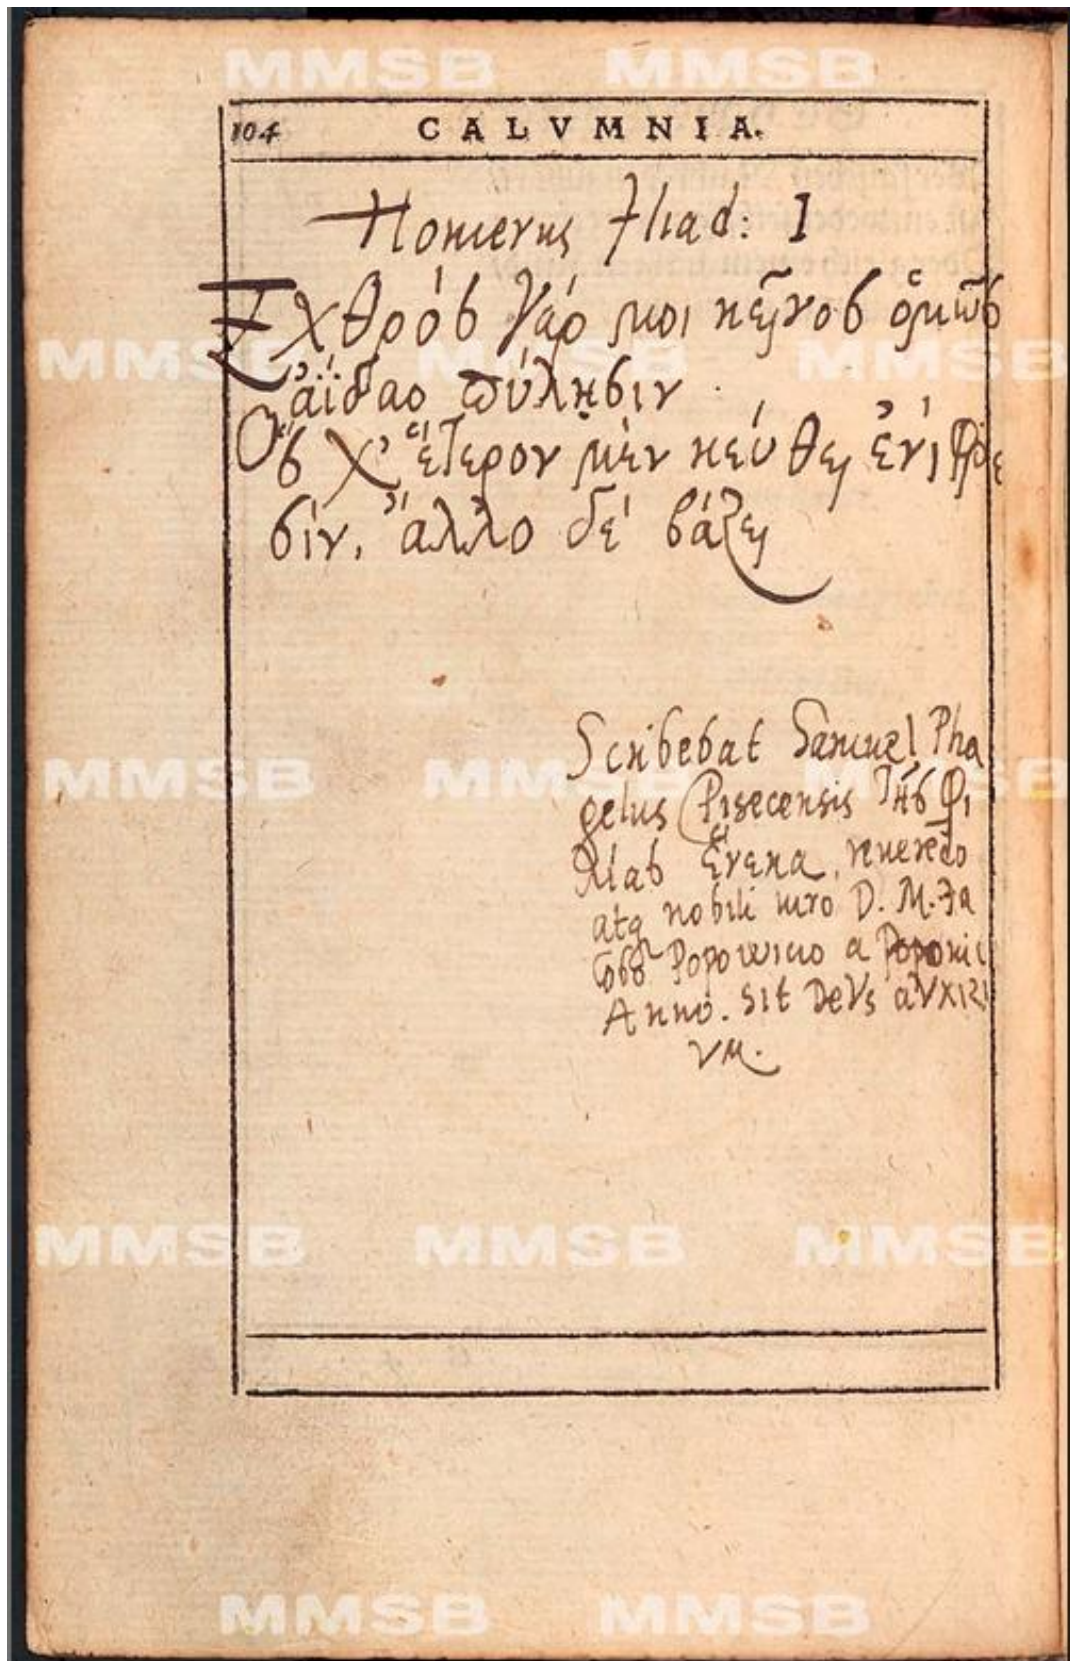 104 CALVMNIA.
Homerus Iliad: I
Ἐχθρός γάρ μοι κεῖνος ὁμῶς
ἀΐδαο πύλῃσιν
Ὅς χ' ἕτερον μὲν κεύθει ἐνὶ φρε
σίν, ἄλλο δέ βάζει
Scribebat Samuel Pha
gelus Pisecensis τῆς φι
λίας ἕνεκα, reuerēdo
atq nobili uiro D. M. Ja
Popowicio a
Anno. sit DeVs aVXILI
VM.
MMSB